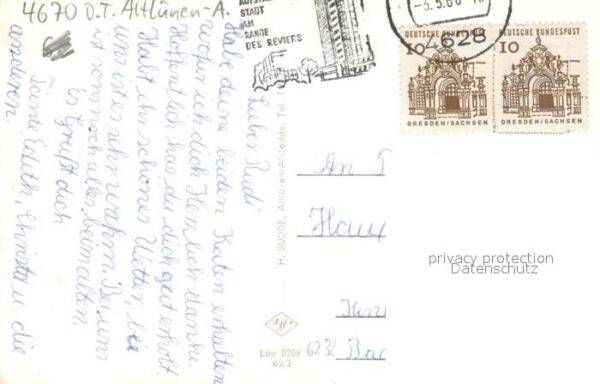 4670 D.T. Altlünen-A.
STADT
AM
RANDE
DES REVIERS
-3.5.66
4628
DEUTSCHE BUNDESPOST
10
DRESDEN/SACHSEN
DEUTSCHE BUNDESPOST
10
DRESDEN/SACHSEN
Lieber Rudi
Habe deine beiden Karten erhalten
wofür ich dich Herzlich danke.
Hoffentlich hast du dich gut erholt
Habt ihr schönes Wetter, bei
uns ist es sehr warm. Bei uns
ist sonst noch alles beim alten.
Es Grüßt dich
Tante Edith, Christa u die
anderen
H. BUDDE, Altlünen-Alstedde, Tel.
Lüe 0209
65/3
An
Haus
6232 Bad
privacy protection
Datenschutz